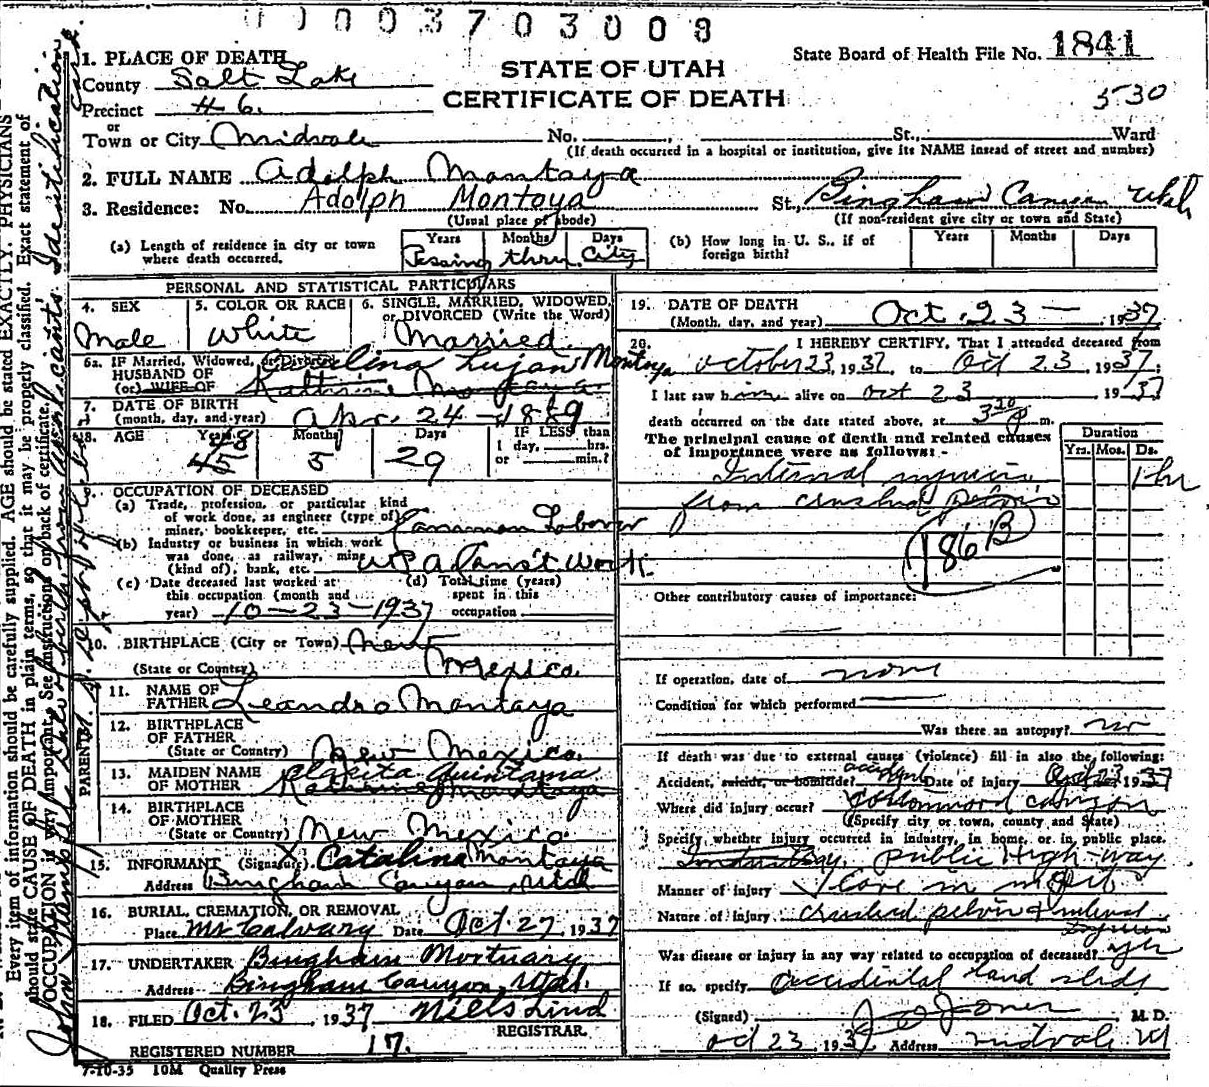 00003703008
1. PLACE OF DEATH
County Salt Lake
Precinct # 6.
or
Town or City Midvale No. St., Ward
(If death occurred in a hospital or institution, give its NAME instead of street and number)
State Board of Health File No. 1841
STATE OF UTAH
CERTIFICATE OF DEATH
530
2. FULL NAME Adolph Montoya
3. Residence: No. Adolph Montoya St., Bingham Canyon Utah
(Usual place of abode) (If non-resident give city or town and State)
(a) Length of residence in city or town where death occurred.
Years Months Days
Passing thru City
(b) How long in U. S., if of foreign birth?
Years Months Days
PERSONAL AND STATISTICAL PARTICULARS
4. SEX
Male
5. COLOR OR RACE
White
6. SINGLE, MARRIED, WIDOWED, or DIVORCED (Write the Word)
Married
6a. IF Married, Widowed, or Divorced
HUSBAND OF
(or) WIFE OF
Lujan Montoya
7. DATE OF BIRTH
(month, day, and year) Apr. 24 - 1889
8. AGE Years Months Days
48 5 29
45
IF LESS than
1 day, hrs.
or min.?
9. OCCUPATION OF DECEASED
(a) Trade, profession, or particular kind
of work done, as engineer (type of)
miner, bookkeeper, etc. Common Laborer
(b) Industry or business in which work
was done, as railway, mine
(kind of), bank, etc. WPA Const Work
(c) Date deceased last worked at
this occupation (month and
year) 10-23-1937
(d) Total time (years)
spent in this
occupation
10. BIRTHPLACE (City or Town) New
(State or Country) Mexico.
PARENTS
11. NAME OF
FATHER Leandro Montoya
12. BIRTHPLACE
OF FATHER
(State or Country) New Mexico.
13. MAIDEN NAME
OF MOTHER Quintana
14. BIRTHPLACE
OF MOTHER
(State or Country) New Mexico.
15. INFORMANT (Signature) Catalina Montoya
Address Bingham Canyon, Utah
16. BURIAL, CREMATION, OR REMOVAL
Place Mt Calvary Date Oct. 27, 1937
17. UNDERTAKER Bingham Mortuary
Address Bingham Canyon, Utah.
18. FILED Oct. 23, 1937 Niels Lind
REGISTRAR.
REGISTERED NUMBER 17.
7-10-35 10M Quality Press
19. DATE OF DEATH
(Month, day, and year) Oct. 23 - 1937
20. I HEREBY CERTIFY, That I attended deceased from
October 23, 1937, to Oct 23, 1937;
I last saw him alive on Oct 23 1937
death occurred on the date stated above, at m.
The principal cause of death and related causes
of importance were as follows:-
Duration
Yrs. Mos. Ds.
Internal injuries 1 hr
from crushed pelvis
186B
Other contributory causes of importance:
If operation, date of none
Condition for which performed
Was there an autopsy? no
If death was due to external causes (violence) fill in also the following:
Accident, suicide, or homicide? accident Date of injury Oct 23 1937
Where did injury occur? Cottonwood Canyon
(Specify city or town, county and State)
Specify whether injury occurred in industry, in home, or in public place.
Industry, public High-way
Manner of injury
Nature of injury crushed pelvis & internal injuries
Was disease or injury in any way related to occupation of deceased? yes
If so, specify accidental land slide
(Signed) Jones M. D.
Oct 23, 1937 Address Midvale Ut
Every item of information should be carefully supplied. AGE should be stated EXACTLY. PHYSICIANS
should state CAUSE OF DEATH in plain terms, so that it may be properly classified. Exact statement of
OCCUPATION is very important. See instructions on back of certificate.